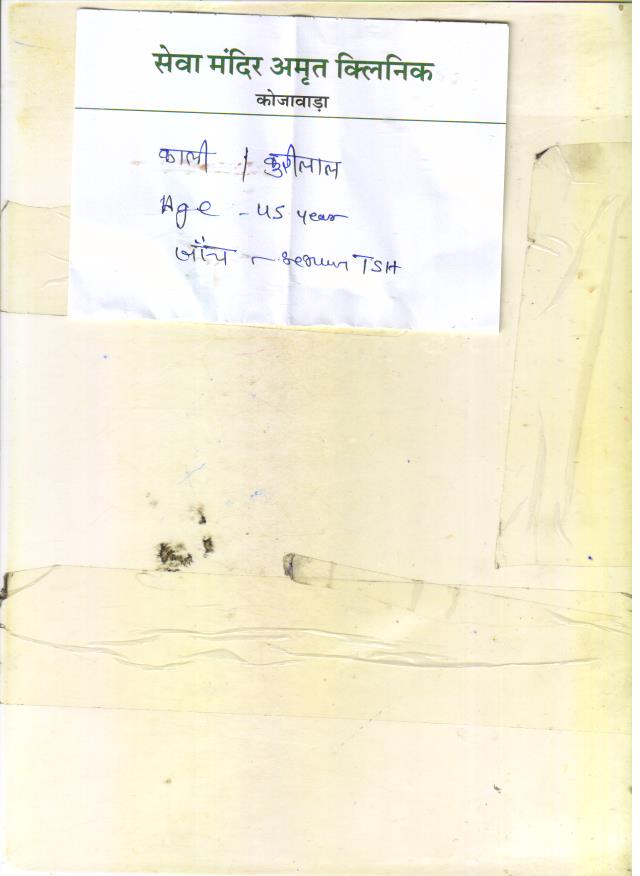 सेवा मंदिर अमृत क्लिनिक
कोजावाड़ा
काली / कुरीलाल
Age - 45 year
जाँच - serum TSH